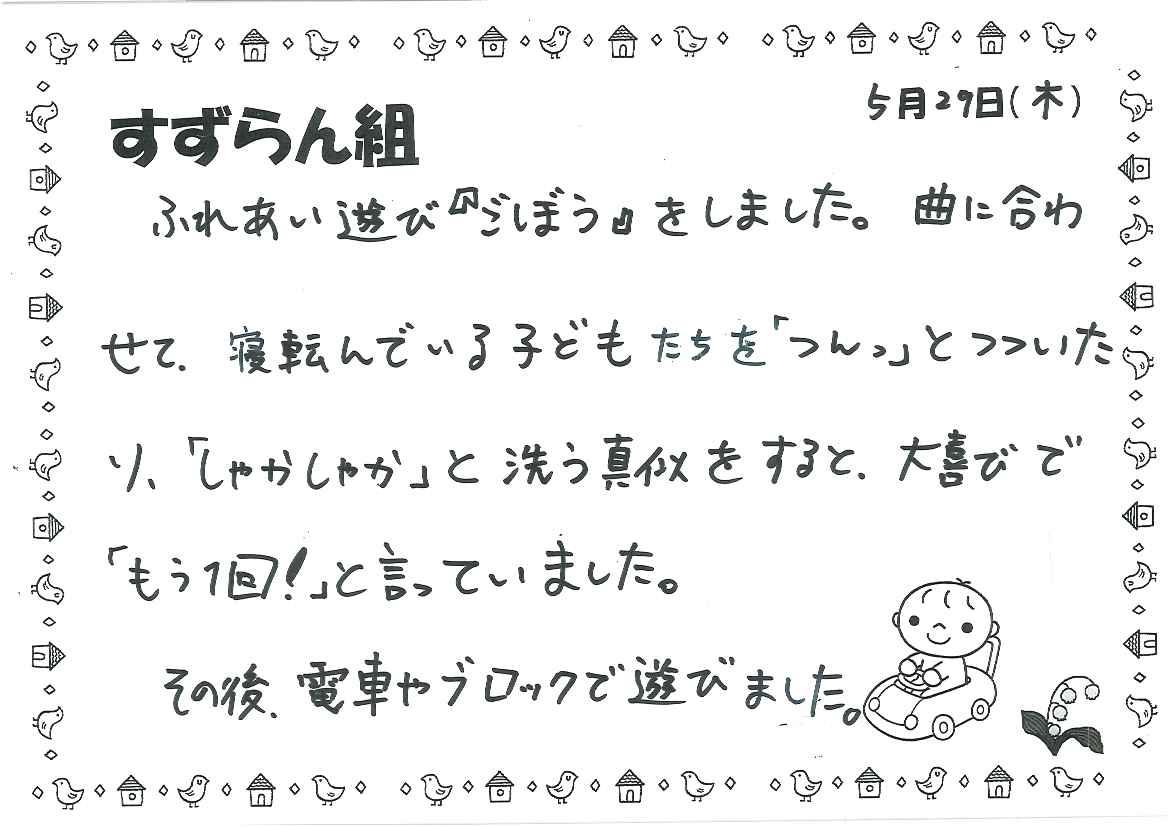 5月29日(木)
すずらん組
ふれあい遊び『ごぼう』をしました。曲に合わ
せて、寝転んでいる子どもたちを「つんっ」とつついた
り、「しゃかしゃか」と洗う真似をすると、大喜びで
「もう1回!」と言っていました。
その後、電車やブロックで遊びました。